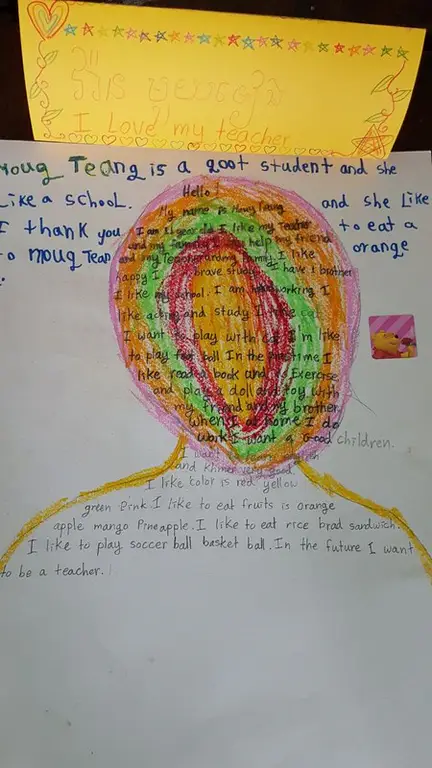 I Love my teacher
Moug Teang is a goot student and she
Like a school. and she Like
I thank you to eat a
to Moug Teap orange
Hello!
My name is Teang
I am 11 year old I like my Teacher
and my family I help my friend
and my family I like
happy I brave study I have 1 brother
I like my school. I am working I
like acting and study I like cat
I want to play with cat I'm like
to play foot ball In the time I
like read a book and Exercise
and play a doll and toy with
my friend and my brother
When I at home I do
work I want a Good children.
I want
and Khmer very good
I like color is red yellow
green Pink. I like to eat fruits is orange
apple mango Pineapple. I like to eat rice brad sandwich.
I like to play soccer ball basket ball. In the future I want
to be a teacher.